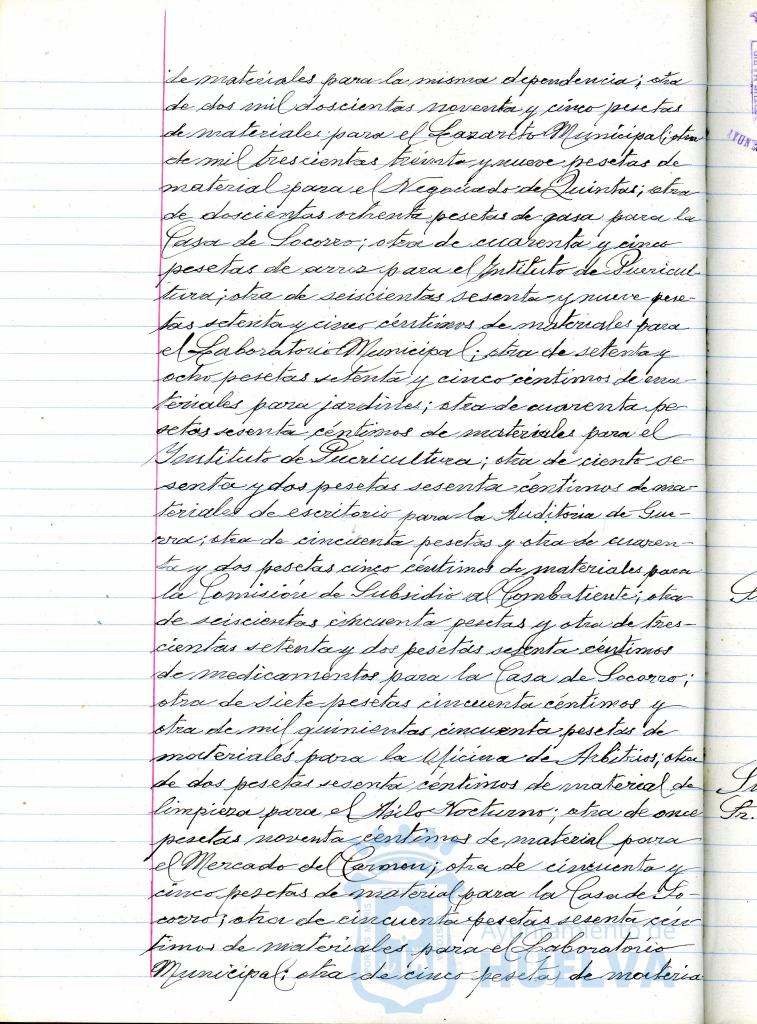 de materiales para la misma dependencia; otra
de dos mil doscientas noventa y cinco pesetas
de materiales para el Lazareto Municipal; otra
de mil trescientas treinta y nueve pesetas de
material para el Negociado de Quintas; otra
de doscientas ochenta pesetas de gasa para la
Casa de Socorro; otra de cuarenta y cinco
pesetas de arroz para el Instituto de Puericul-
tura; otra de seiscientas sesenta y nueve pese-
tas setenta y cinco céntimos de materiales para
el Laboratorio Municipal; otra de setenta y
ocho pesetas setenta y cinco céntimos de ma-
teriales para jardines; otra de cuarenta pe-
setas sesenta céntimos de materiales para el
Instituto de Puericultura; otra de ciento se-
senta y dos pesetas sesenta céntimos de ma-
teriales de escritorio para la Auditoria de Gue-
rra; otra de cincuenta pesetas y otra de cuaren-
ta y dos pesetas cinco céntimos de materiales para
la Comisión de Subsidio al Combatiente; otra
de seiscientas cincuenta pesetas y otra de tres-
cientas setenta y dos pesetas sesenta céntimos
de medicamentos para la Casa de Socorro;
otra de siete pesetas cincuenta céntimos y
otra de mil quinientas cincuenta pesetas de
materiales para la Oficina de Arbitrios; otra
de dos pesetas sesenta céntimos de material de
limpieza para el Asilo Nocturno; otra de once
pesetas noventa céntimos de material para
el Mercado del Carmen; otra de cincuenta y
cinco pesetas de material para la Casa de So-
corro; otra de cincuenta pesetas sesenta cén-
timos de materiales para el Laboratorio
Municipal; otra de cinco peseta de materia
Ayuntamiento de
HUELVA